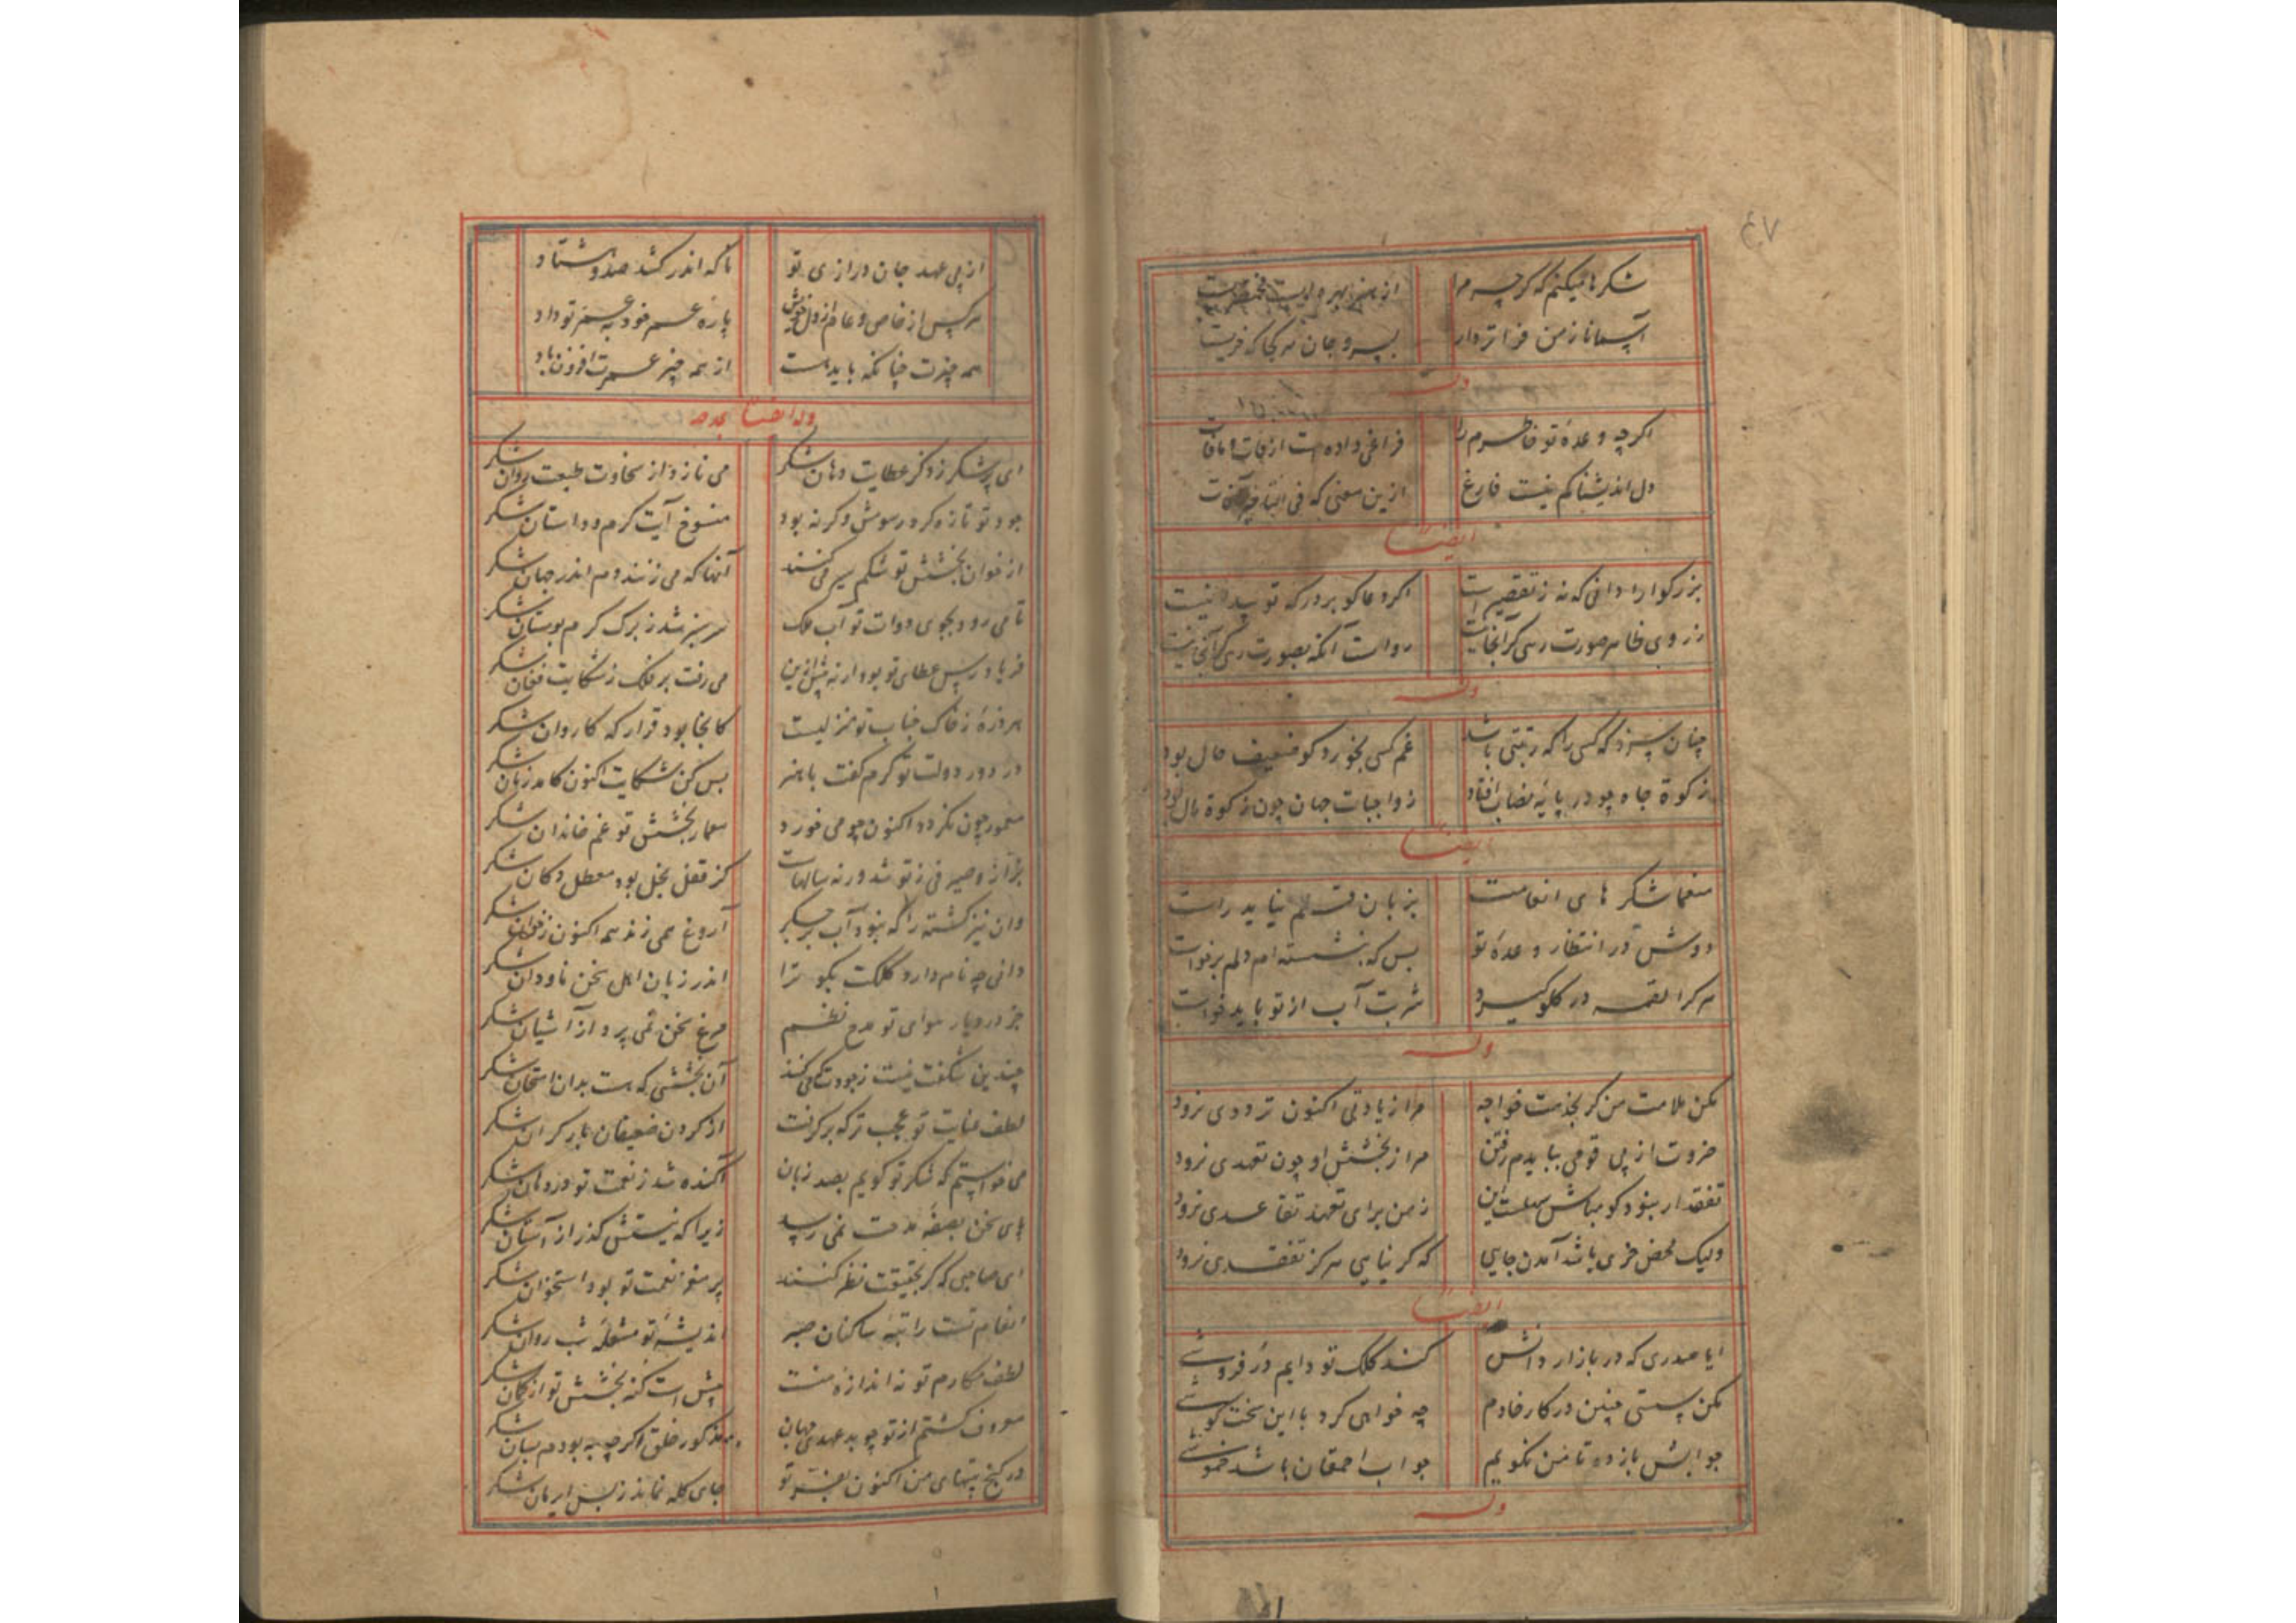 ۴۷
شکرها میکنم که گرچه مرا از هنر بهره
آسمانا ز من فراتر دار بسر و جان هر کجا که
وله
اگرچه وعدهٔ تو خاطرم را فراغی داده است از
دل اندیشناکم نیست فارغ ازین معنی که فی التاخیر آفات
ایضا
بزرگوارا دانی که نه ز تقصیر است اگر دعاگو بر درگه تو پیدا نیست
ز روی ظاهر صورت رهی گر آنجا رواست آنکه بصورت رهی آنجا نیست
وله
چنان سزد که کسی را که رتبتی باشد غم کسی بخورد کو ضعیف حال بود
زکوة جاه چو در پایهٔ نصاب افتاد ز واجبات جهان چون زکوة مال بود
ایضا
منعما شکر های انعامت بزبان قلم نیاید راست
دوش در انتظار وعدهٔ تو بس که بنشسته ام دلم برخواست
هر کرا لقمه در گلو گیرد شربت آب از تو باید خواست
وله
مکن ملامت من گر بخدمت خواجه مرا زیادتی اکنون ترددی نرود
ضرورت از پی قوتی ببایدم رفتن مرا ز بخشش او چون تعهدی نرود
تفقد ار نبود گو مباش سهلست این ز من برای تعهد تقاعدی نرود
ولیک محض خری باشد آمدن جایی که گر نیایی هرگز تفقدی نرود
ایضا
ایا صدری که در بازار دانش کند کلک تو دایم در فروشی
مکن سستی چنین در کار خادم چه خواهی کرد با این سخت کوشی
جوابش بازده تا من نگویم جواب احمقان باشد خموشی
وله
از پی عهد جان درازی تو تا که اندر کشد صد و هشتاد
هر کس از خاص و عام از دل خویش پاره عمر خود به عمر تو داد
همه چیزت چنانکه باید هست از همه چیز عمرت افزون باد
وله ایضا یمدحه
ای پر شکر ز ذکر عطایت دهان شکر می نازد از سخاوت طبعت روان شکر
جود تو تازه کرد رسومش وگرنه بود منسوخ آیت کرم و داستان شکر
از خوان بخشش تو شکم سیر می کنند آنها که می زنند دم اندر جهان شکر
تا می رود بجوی دوات تو آب ملک سرسبز شد ز برگ کرم بوستان شکر
فریاد رس عطای تو بود ار نه پیش ازین می رفت بر فلک ز شکایت فغان شکر
امروزه ز خاک جناب تو منزلیست کانجا بود قرار که کاروان شکر
در دور دولت تو کرم گفت با هنر بس کن شکایت اکنون کامد زمان شکر
معمور چون نگردد اکنون چو می خورد معمار بخشش تو غم خاندان شکر
ز تو شد ورنه سالهاست کز قفل بخل بود معطل دکان شکر
وان نیز گشته را که نبود آب بر جگر آروغ همی زند همه اکنون ز خوان شکر
دانی چه نام دارد کلکت بگو ترا اندر زبان اهل سخن ناودان شکر
جز در دیار هوای تو مدح نظم مرغ سخن نمی پرد از آشیان شکر
چندین شگفت نیست ز جودت که می کند آن بخششی که هست بدان امتحان شکر
لطف عنایت تو عجب تر که برگرفت از گردن ضعیفان بار گران شکر
می خواستم که شکر تو گویم بصد زبان آکنده شد ز نعمت تو در دهان شکر
پای سخن بصفهٔ مدحت نمی رسد زیرا که نیستش گذر از آستان شکر
ای صاحبی که گر بحقیقت نظر کنند پر مغز نعمت تو بود استخوان شکر
انعام تست راتبهٔ ساکنان اندیشهٔ تو مشعلهٔ شب روان شکر
لطف مکارم تو نه اندازهٔ منست بیش است کنه بخشش تو از گمان شکر
معروف گشتم از تو چو بد عهدی جهان مذکور خلق اگر چه به بودم بسان شکر
در کنج بیتهای من اکنون بفر تو جای گله نماند ز بس شکر